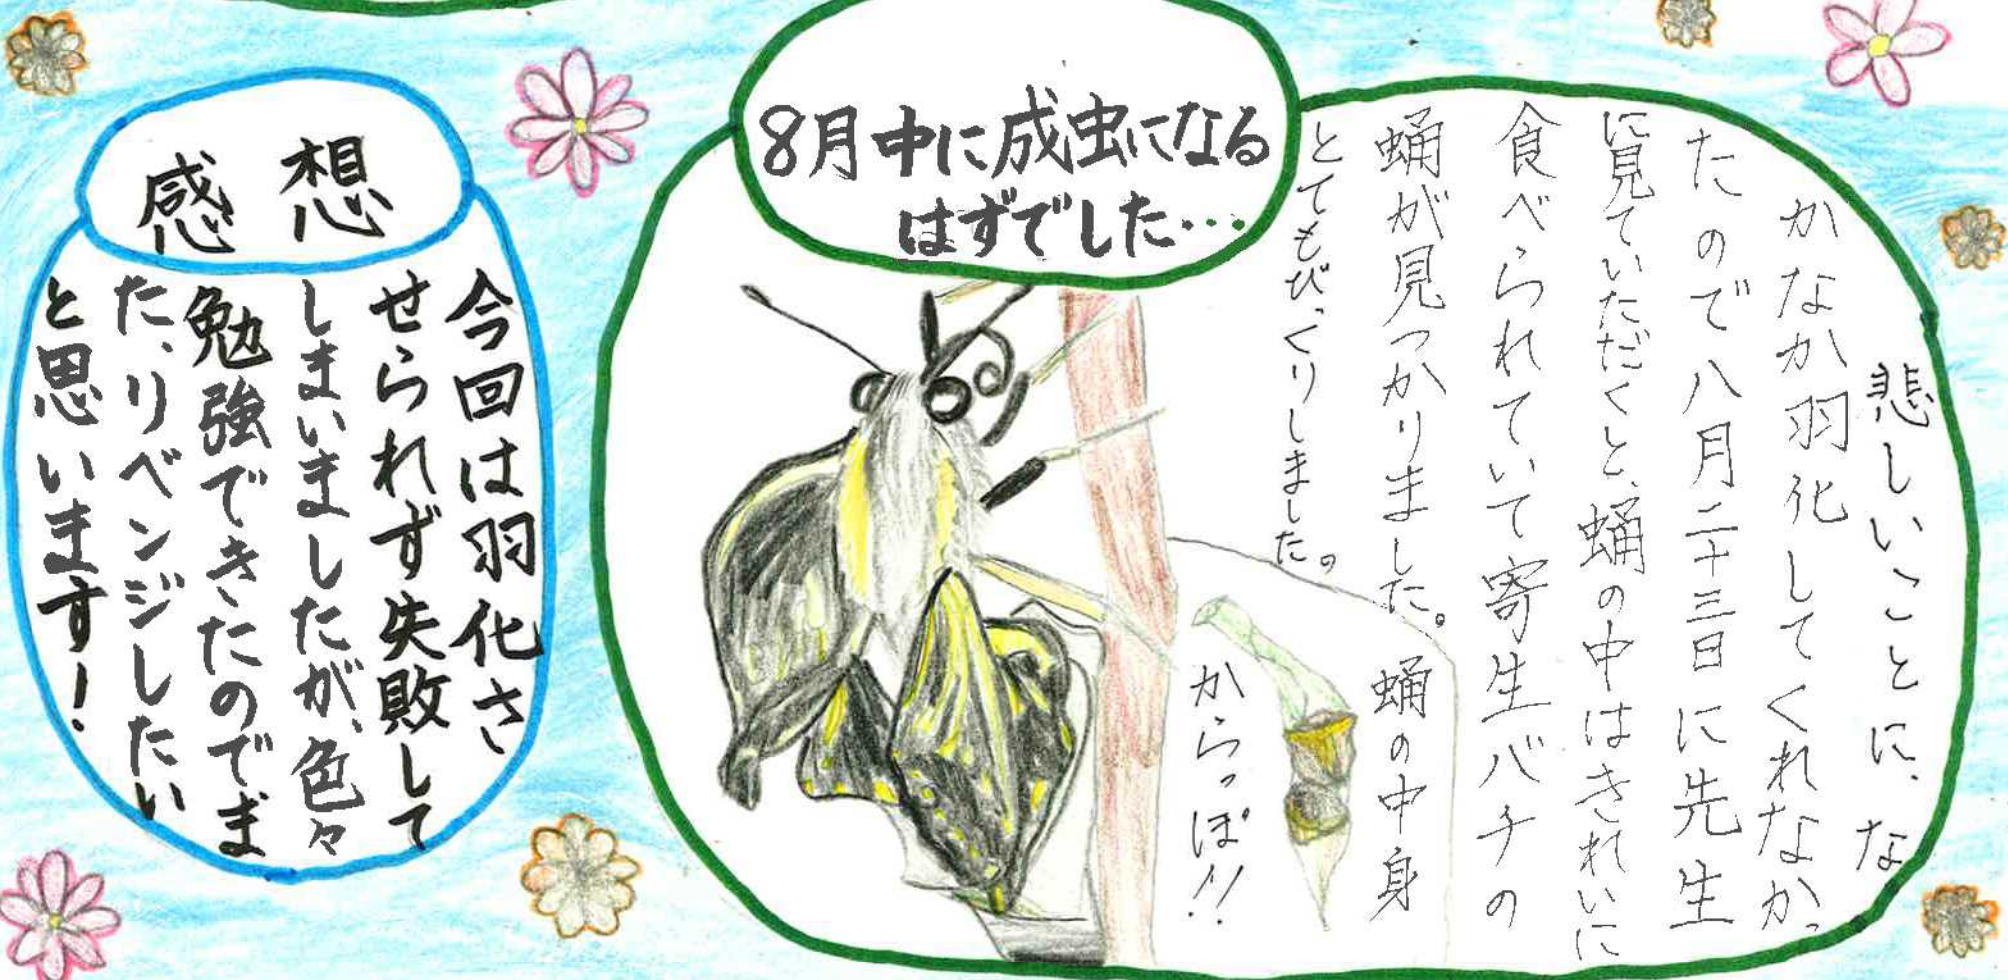 8月中に成虫になる
はずでした…
悲しいことに、な
かなか羽化してくれなかっ
たので八月二十三日に先生
に見ていただくと、蛹の中はきれいに
食べられていて寄生バチの
蛹が見つかりました。
とてもびっくりしました。
蛹の中身
からっぽ!!
感想
今回は羽化さ
せられず失敗して
しまいましたが、色々
勉強できたのでま
た、リベンジしたい
と思います!